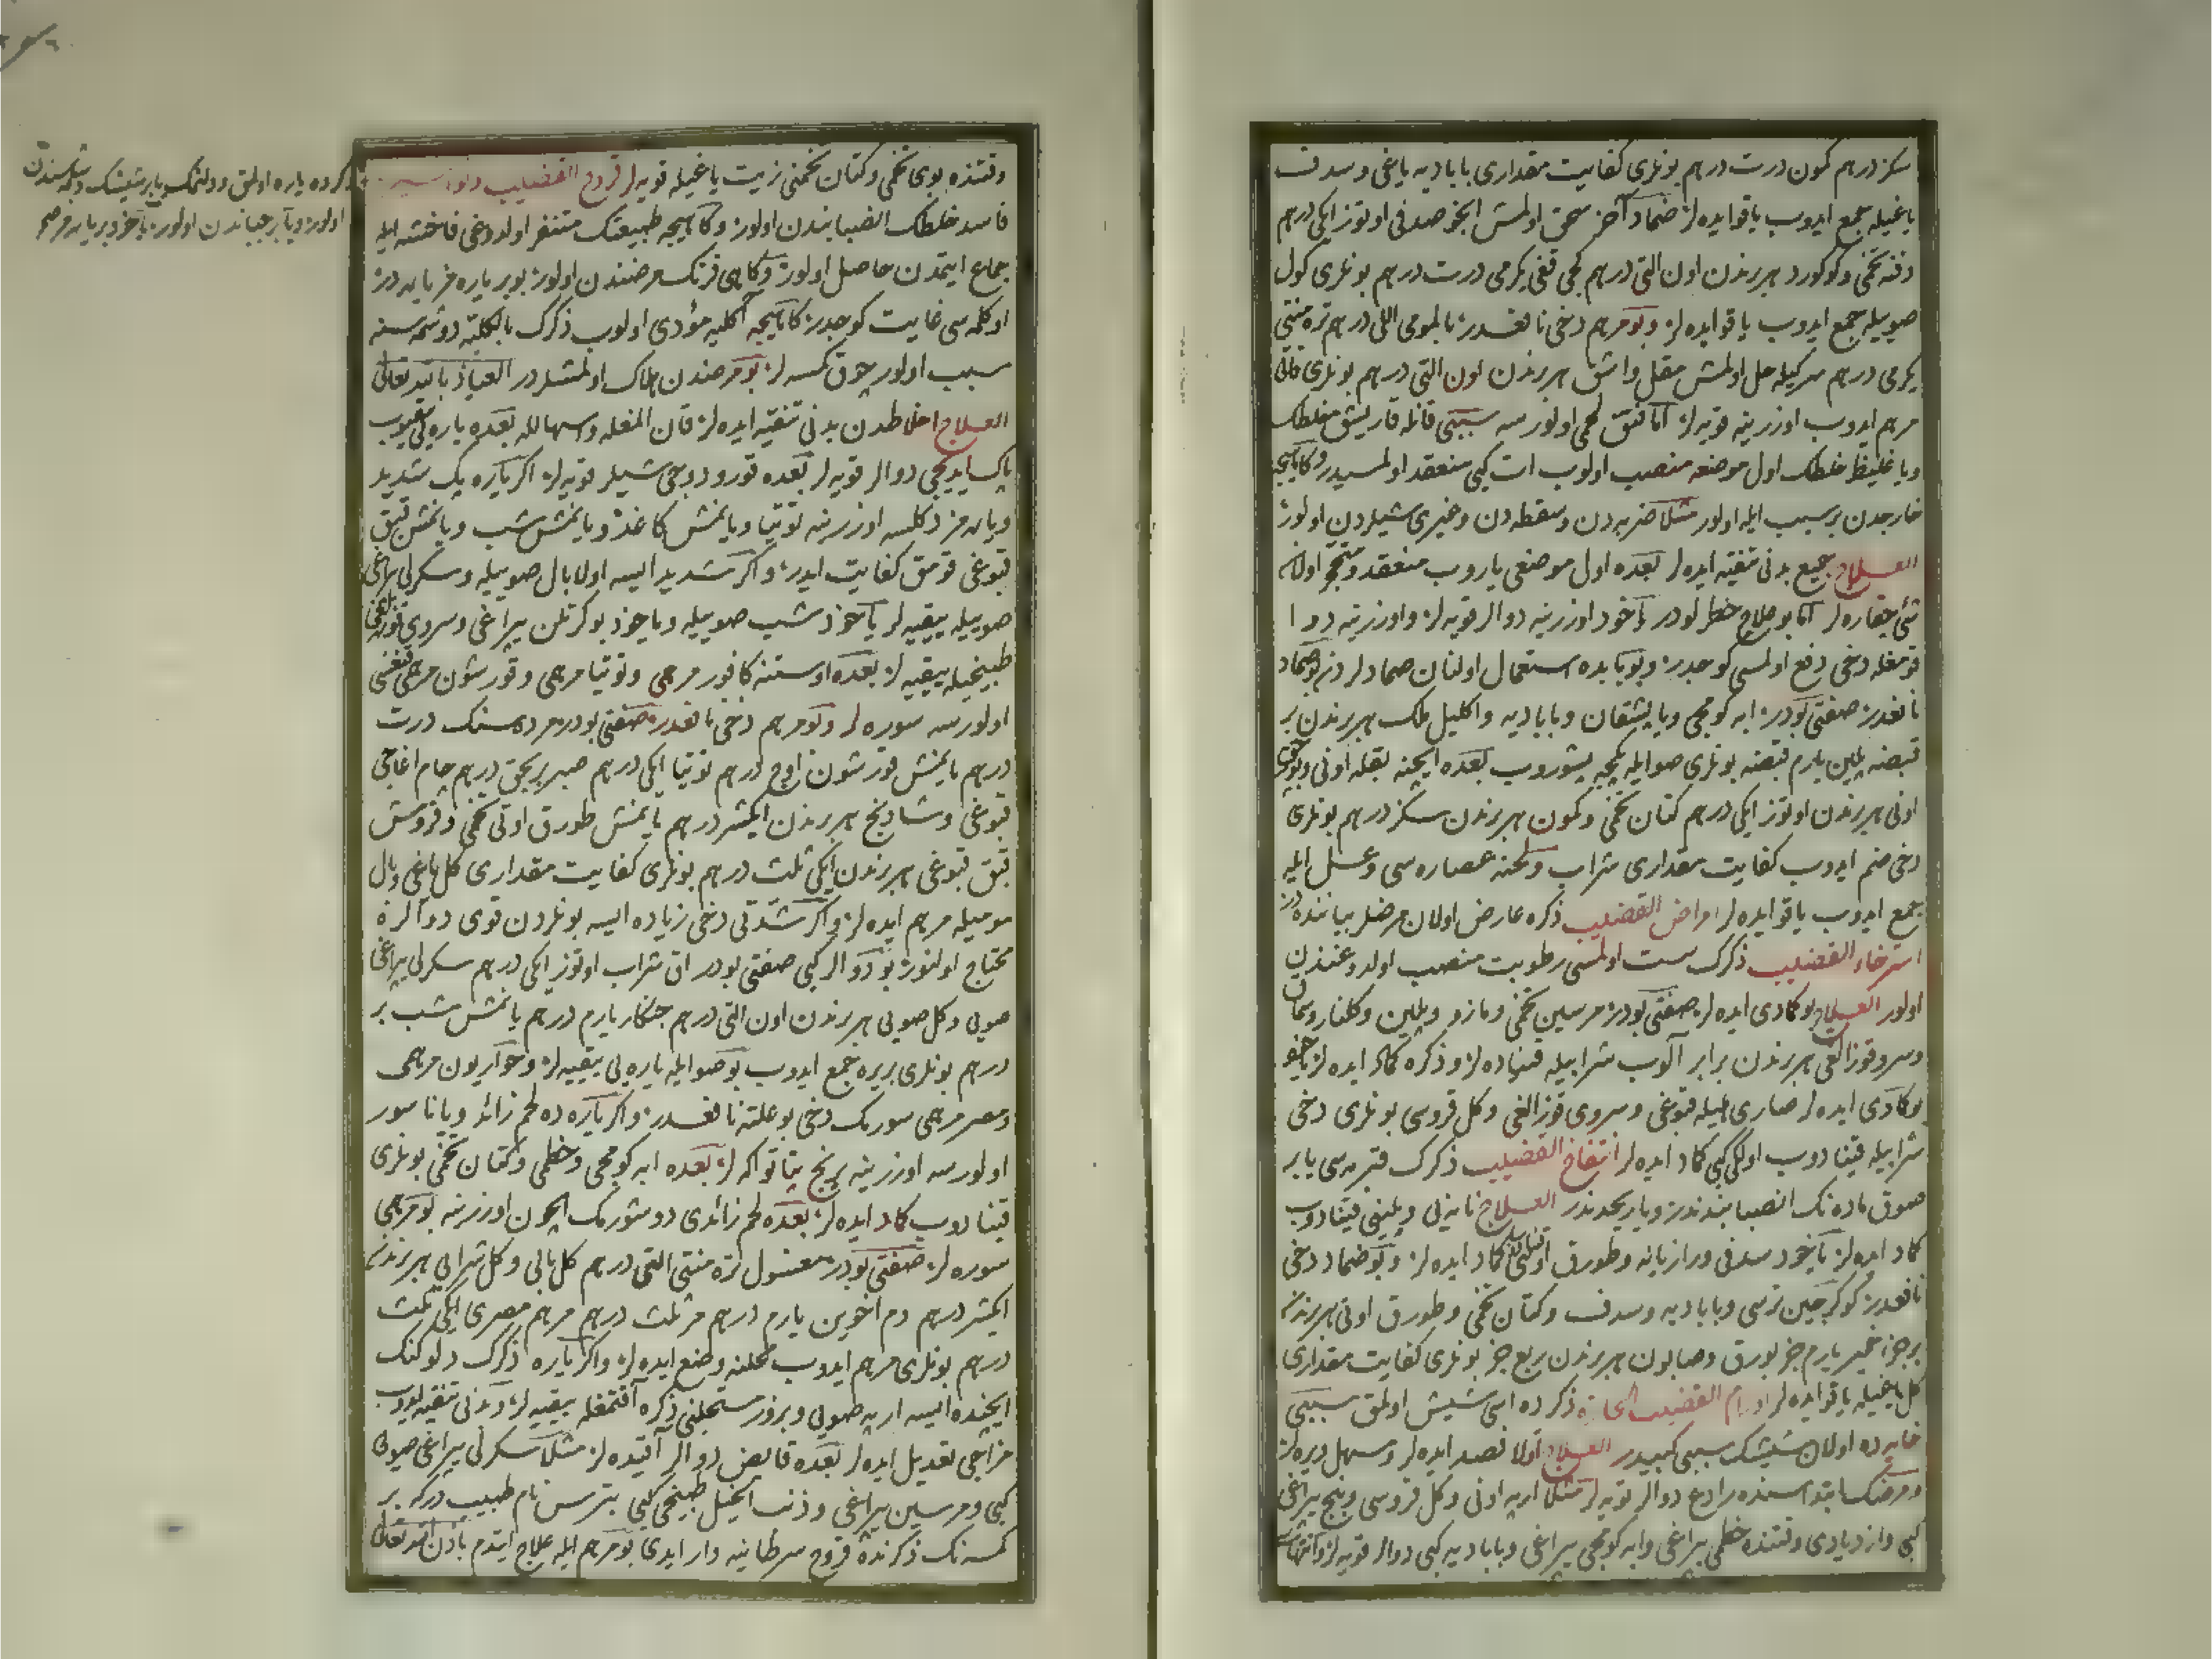 سكز درهم كمون درت درهم بونلرى كفايت مقدارى بابادیه ياغى و سدف
ياغيله جمع ايدوب ياقو ايده‌لر ضماد آخر سحق اولمش انجو صدفى اوتوز ايكى درهم
دفنه تخمى و كوكورد هر برندن اون التى درهم كچى قغى يكرمى درت درهم بونلرى كول
صوييله جمع ايدوب ياقو ايده‌لر وبو مرهم دخى نافعدر بالمومى اللى درهم تره منتى
يكرمى درهم سركيله حل اولمش مقل و اشق هر برندن اون التى درهم بونلرى
مرهم ايدوب اوزرينه قويه‌لر اما فتق لحمى اولورسه سببى قانله قاريشق خلطك
ويا غليظ خلطك اول موضعه منصب اولوب ات كبى منعقد اولمسيدر و كاهيجه
خارجدن بر سبب ايله اولور مثلا ضربه‌دن و سقطه‌دن و غيرى شيلردن اولور
العلاج جميع بدنى تنقيه ايده‌لر بعده اول موضعى ياروب منعقد و متحجر اولان
شئ چقاره‌لر اما بو علاج خطرلودر ياخود اوزرينه دوالر قويه‌لر و اوزرينه دوا
قومغله دخى دفع اولمسى كوجدر و بو بابده استعمال اولنان ضمادلردن بو ضماد
نافعدر صفتى بودر ابه كومجى و ياپشقان و بابادیه و اكليل ملك هر برندن بر
قبضه پلين يارم قبضه بونلرى صو ايله پشوروب بعده ايچنه بقله اونى
اونى هر برندن اوتوز ايكى درهم كتان تخمى و كمون هر برندن سكز درهم بونلرى
دخى ضم ايدوب كفايت مقدارى شراب و لحنه عصاره‌سى و عسل ايله
جمع ايدوب ياقو ايده‌لر امراض القضيب ذكره عارض اولان مرضلر بياننده‌در
استرخاء القضيب ذكرك سست اولمسى رطوبت منصب اولدوغندن
اولور العلاج بو كمادى ايده‌لر صفتى بودر مرسين تخمى و مازو و پلين و كلنار و سماق
و سرو قوزالغى هر برندن برابر آلوب شرابيله قينادەلر و ذكره كماد ايده‌لر ياخود
بو كمادى ايده‌لر صارى هليله قبوغى و سروى قوزالغى و كل قروسى بونلرى دخى
شرابيله قينادوب اولكى كبى كماد ايده‌لر انتفاخ القضيب ذكرك قبرمه‌سى يا بر
صوق ماده‌نك انصبابندندر و يا ريحدندر العلاج نانه‌يى و پلينى قينادوب
كماد ايده‌لر ياخود سدفى و رازيانه و طورق اوتنى كماد ايده‌لر و بو ضماد دخى
نافعدر كوكرجين ترسى و بابادیه و سدف و كتان تخمى و طورق اوتى هر برندن
بر جزء خمير يارم جزء بورق و صابون هر برندن ربع جزء بونلرى كفايت مقدارى
كل ياغيله ياقو ايده‌لر اورام القضيب الحاره ذكرده اسى شيش اولمق سببى
خايه‌ده اولان شيشك سببى كبيدر العلاج اولا فصد ايده‌لر و مسهل ويره‌لر
و مرضك ابتداسنده رادع دوالر قويه‌لر مثلا ارپه اونى و كل قروسى و بنج پپراغى
كبى و ازديادى وقتنده خطمى پپراغى و ابه كومجى پپراغى و بابادیه كبى دوالر قويه‌لر
وقتنده بوى تخمى و كتان تخمنى زيت ياغيله قويه‌لر قروح القضيب
فاسد خلطك انصبابندن اولور و كاهيجه طبيعتك متنفر اولدوغى فاحشه ايله
جماع ايتمدن حاصل اولور و كاهى فرنك مرضندن اولور بو بر ياره مزيايه‌در
اوكلمه‌سى غايت كوجدر كاهيجه آكله‌يه مؤدى اولوب ذكرك بالكليه دوشمه‌سنه
سبب اولور چوق كمسه‌لر بو مرضدن هلاك اولمشلردر العياذ بالله تعالى
العلاج اخلاطدن بدنى تنقيه ايده‌لر قان المغله و اسهالله بعده ياره‌يى يقيوب
پاك ايديجى دوالر قويه‌لر بعده قورودوجى شيلر قويه‌لر اكر ياره پك شديد
و يا يه‌مز دكلسه اوزرينه توتيا و يانمش كاغذ و يانمش شب و يانمش قبق
قبوغى قومق كفايت ايدر و اكر شديد ايسه اولا بال صوييله و سكرلى پپراغى
صوييله يقيه‌لر ياخود شب صوييله و ياخود بوكرتلن پپراغى و سروى قوزالغى
طبيخيله يقيه‌لر بعده اوستنه كافور مرهمى و توتيا مرهمى و قورشون مرهمى قنغيسى
اولورسه سوره‌لر و بو مرهم دخى نافعدر صفتى بودر مرده سنك درت
درهم يانمش قورشون اوچ درهم توتيا ايكى درهم صبر بر بچق درهم چام اغاجى
قبوغى و شادنج هر برندن ايكيشر درهم يانمش طورق اوتى تخمى و قورومش
قبق قبوغى هر برندن ايكى ثلث درهم بونلرى كفايت مقدارى كل ياغى و بال
موميله مرهم ايده‌لر و اكر شدتى دخى زياده ايسه بونلردن قوى دوالره
محتاج اولنور بو دوالر كبى صفتى بودر اق شراب اوتوز ايكى درهم سكرلى پپراغى
صويى و كل صويى هر برندن اون التى درهم جنكار يارم درهم يانمش شب بر
درهم بونلرى بر يره جمع ايدوب بو صو ايله ياره‌يى يقيه‌لر و حواريون مرهمى
و مصر مرهمى سورمك دخى بو علته نافعدر و اكر ياره‌ده لحم زائد و يا ناسور
اولورسه اوزرينه برنج پتا توآكه‌لر بعده ابه كومجى و خطمى و كتان تخمى بونلرى
قينادوب كماد ايده‌لر بعده لحم زائدى دوشورمك ايچون اوزرينه بو مرهمى
سوره‌لر صفتى بودر مغسول تره منتى التى درهم كل بالى و كل شرابى هر برندن
ايكيشر درهم دم اخوين يارم درهم مر ثلث درهم مرهم مصرى ايكى ثلث
درهم بونلرى مرهم ايدوب محلنه وضع ايده‌لر و اكر ياره ذكرك دلوكنك
ايچنده ايسه ارپه صويى و بزور مستحلبنى ذكره اقتمغله يقيه‌لر و بدنى تنقيه ايدوب
مزاجى تعديل ايده‌لر بعده قابض دوالر آقيده‌لر مثلا سكرلى پپراغى صويى
كبى و مرسين پپراغى و ذنب الخيل طبيخى كبى بترس نام طبيب دركه بر
كمسنه‌نك ذكرنده قروح سرطانيه وار ايدى بو مرهم ايله علاج ايتدم باذن الله تعالى
ذكرده ياره اولمق و دلنمك يا بر شيشك دشلمسندن
اولور و يا بر چباندن اولور ياخود بر يارمز